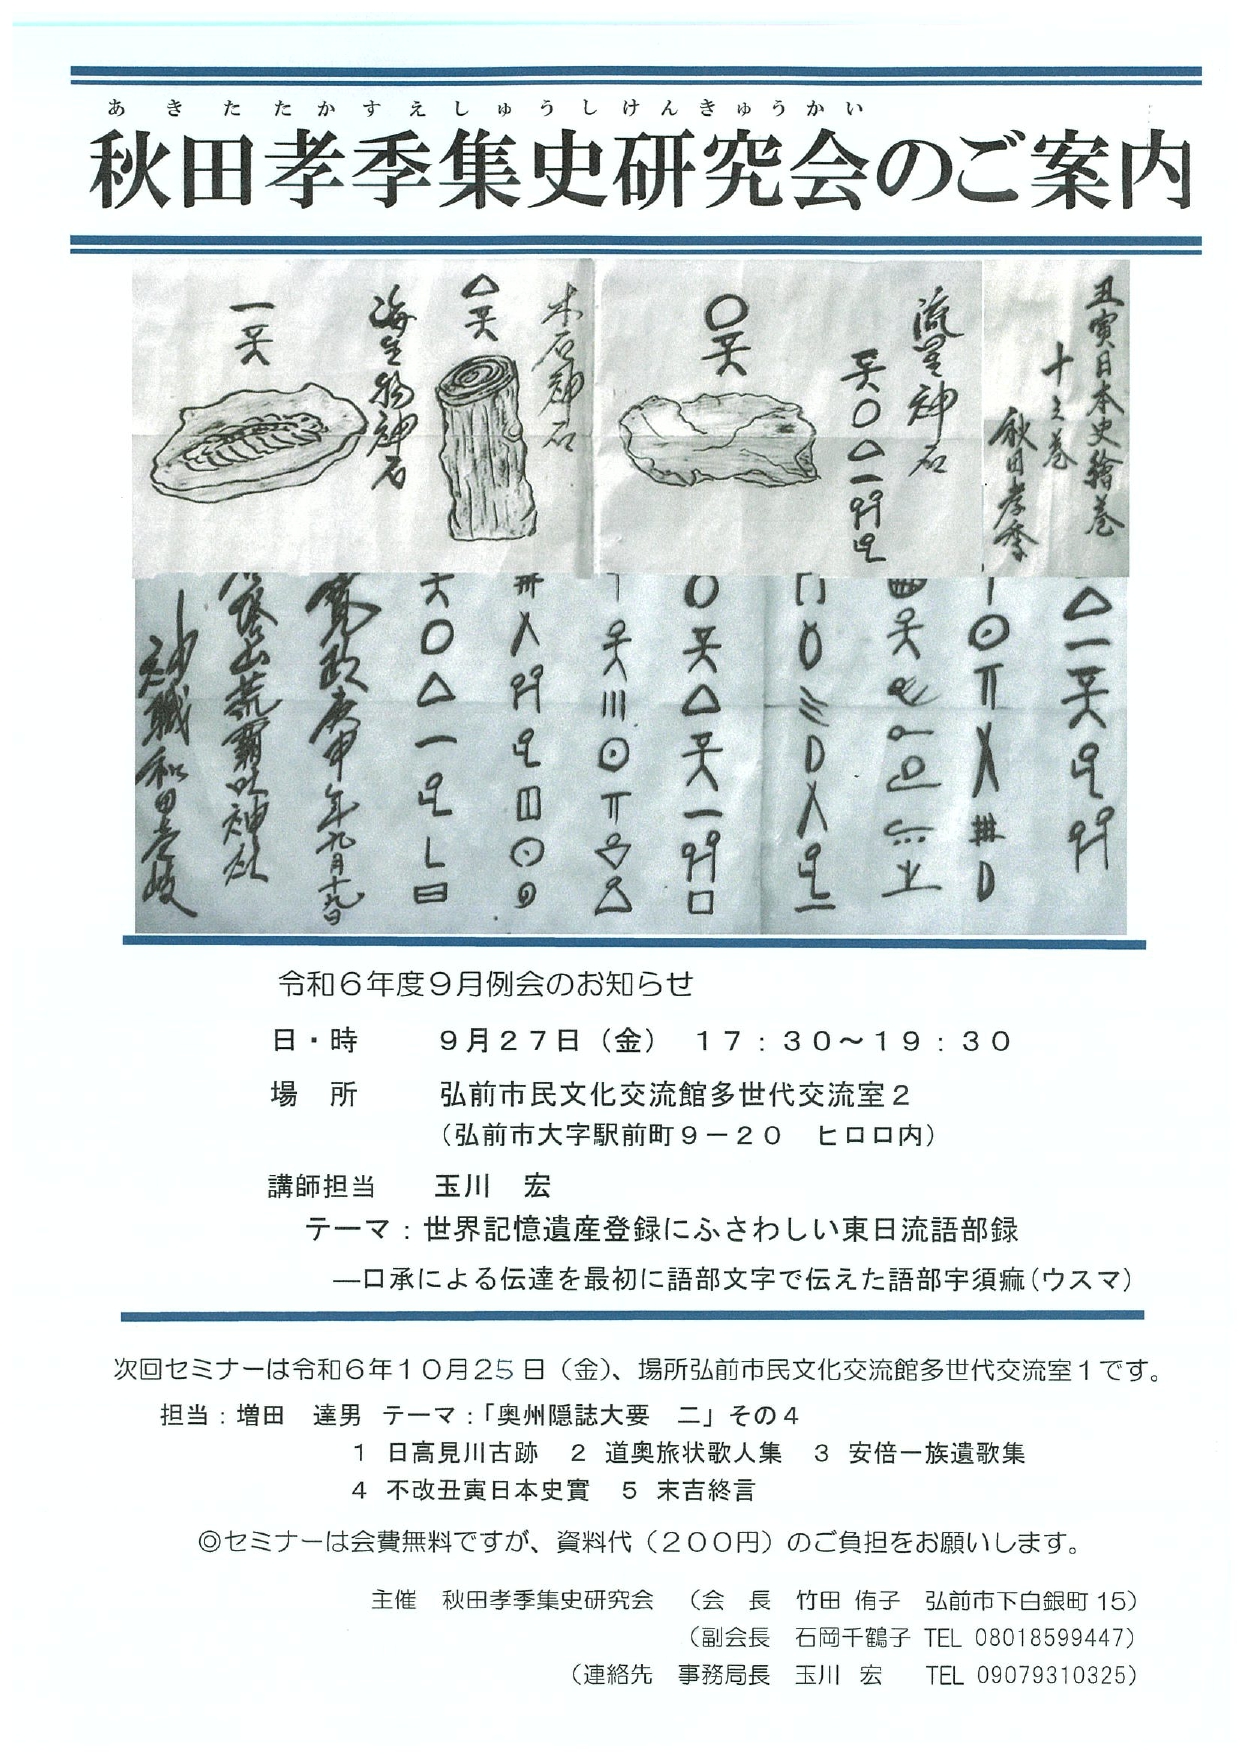 あきたたかすえしゅうしけんきゅうかい
秋田孝季集史研究会のご案内
丑寅日本史繪巻
十之巻
秋田孝季
流星神石
木石神石
海生物神石
寛政庚申年九月十九日
山荒覇吐神社
神職和田壱岐
令和６年度９月例会のお知らせ
日・時　９月２７日（金）　１７：３０～１９：３０
場　所　弘前市民文化交流館多世代交流室２
（弘前市大字駅前町９－２０　ヒロロ内）
講師担当　玉川　宏
テーマ：世界記憶遺産登録にふさわしい東日流語部録
―口承による伝達を最初に語部文字で伝えた語部宇須痲（ウスマ）
次回セミナーは令和６年１０月２５日（金）、場所弘前市民文化交流館多世代交流室１です。
担当：増田　達男　テーマ：「奥州隠誌大要　二」その４
１　日高見川古跡　２　道奥旅状歌人集　３　安倍一族遺歌集
４　不改丑寅日本史實　５　末吉終言
◎セミナーは会費無料ですが、資料代（２００円）のご負担をお願いします。
主催　秋田孝季集史研究会　（会　長　竹田 侑子　弘前市下白銀町 15）
（副会長　石岡千鶴子 TEL 08018599447）
（連絡先　事務局長　玉川　宏　TEL 09079310325）